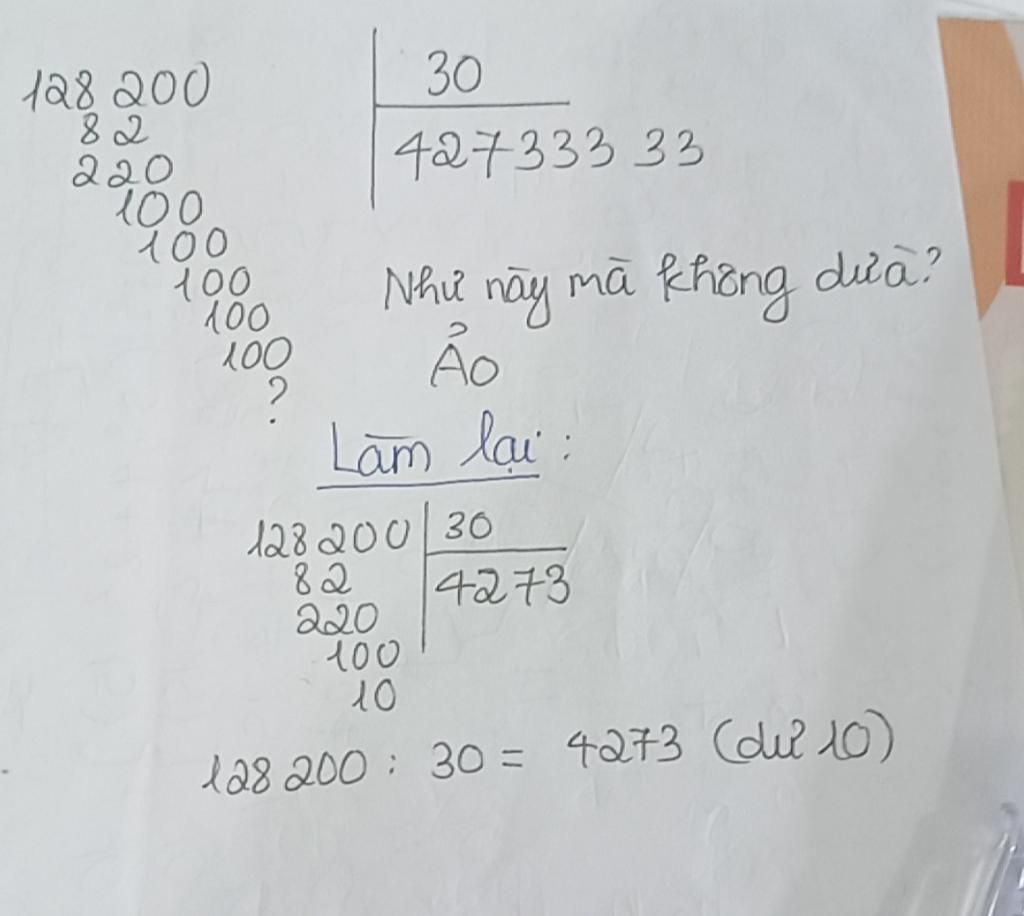 128 200 | 30
82 | 427333 33
220
100
100
100 Như này mà không dư à?
100
100 Ảo
?
Làm lại:
128 200 | 30
82 | 4273
220
100
10
128 200 : 30 = 4273 (dư 10)